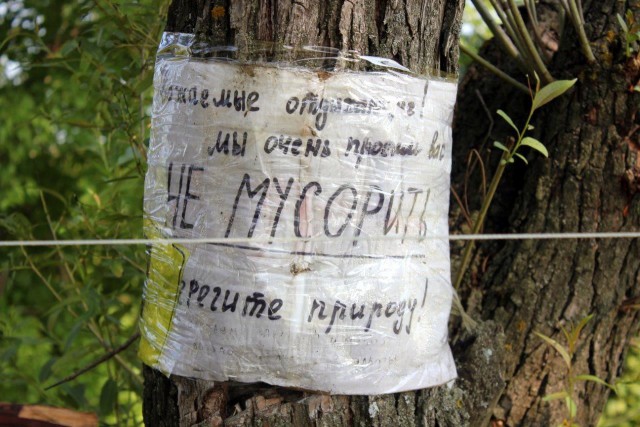 Уважаемые отдыхающие!
мы очень просим вас
НЕ МУСОРИТЬ
Берегите природу!